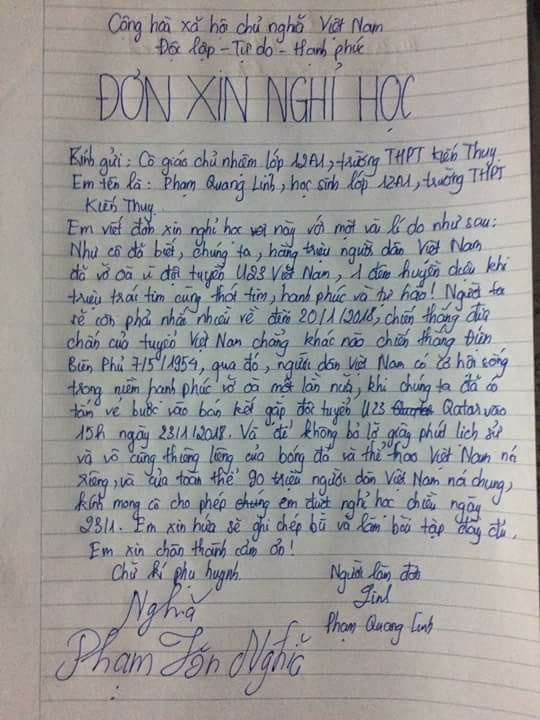 Cộng hòa xã hội chủ nghĩa Việt Nam
Độc lập - Tự do - Hạnh phúc
ĐƠN XIN NGHỈ HỌC
Kính gửi: Cô giáo chủ nhiệm lớp 12A1, trường THPT Kiến Thụy
Em tên là: Phạm Quang Linh, học sinh lớp 12A1, trường THPT
Kiến Thụy
Em viết đơn xin nghỉ học này với một vài lí do như sau:
Như cô đã biết, chúng ta, hàng triệu người dân Việt Nam
đã vỡ òa vì đội tuyển U23 Việt Nam, 1 đêm huyền diệu khi
triệu trái tim cùng thót tim, hạnh phúc và tự hào! Người ta
sẽ còn phải nhắc nhiều về đêm 20/1/2018, chiến thắng địa
chấn của tuyển Việt Nam chẳng khác nào chiến thắng Điện
Biên Phủ 7/5/1954, qua đó, người dân Việt Nam có cơ hội sống
trong niềm hạnh phúc vỡ òa một lần nữa, khi chúng ta đã có
tấm vé bước vào bán kết gặp đội tuyển U23 Qatar vào
15h ngày 23/1/2018. Và để không bỏ lỡ giây phút lịch sử
và vô cùng thiêng liêng của bóng đá và thể thao Việt Nam nói
riêng, và của toàn thể 90 triệu người dân Việt Nam nói chung,
kính mong cô cho phép chúng em được nghỉ học chiều ngày
23/1. Em xin hứa sẽ ghi chép bù và làm bài tập đầy đủ.
Em xin chân thành cảm ơn!
Chữ kí phụ huynh. Người làm đơn
Nghĩa Linh
Phạm Văn Nghĩa Phạm Quang Linh